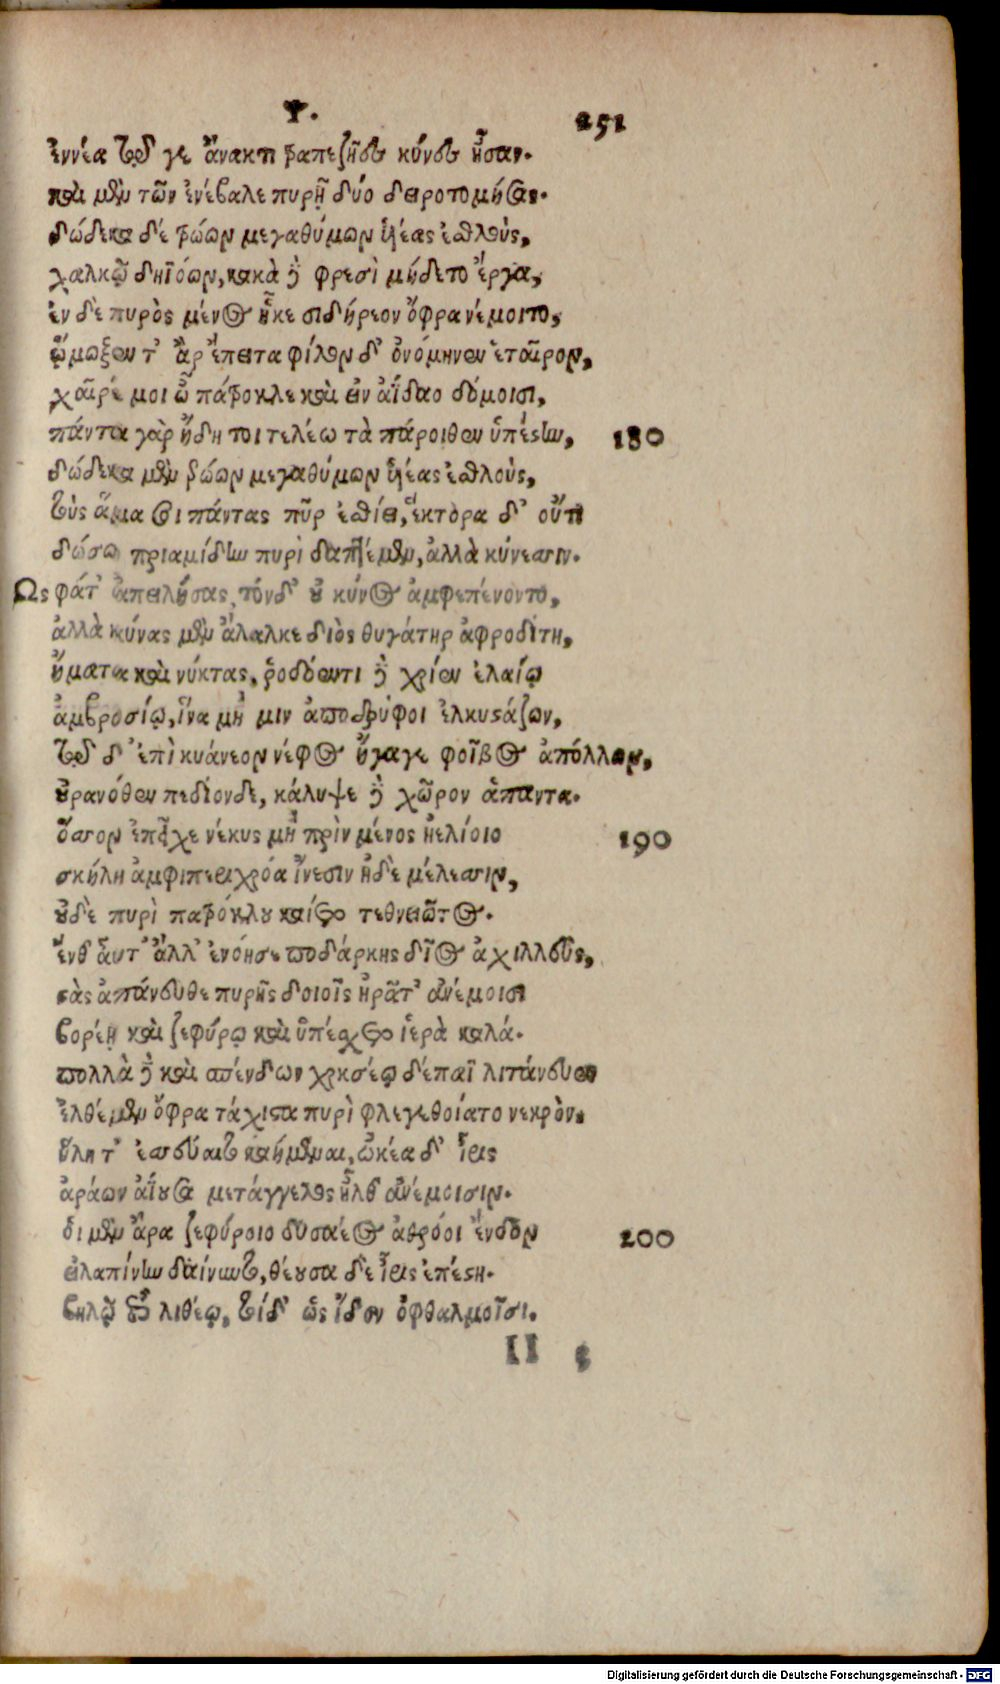 Ψ. 251
ἐννέα τῷ γε ἄνακτι τραπεζῆες κύνες ἦσαν.
καὶ μὲν τῶν ἐνέβαλε πυρῇ δύο δειροτομήσας.
δώδεκα δέ τρώων μεγαθύμων ὑιέας ἐσθλοὺς,
χαλκῷ δηϊόων, κακὰ δὲ φρεσὶ μήδετο ἔργα,
ἐν δὲ πυρὸς μένος ἧκε σιδήρεον ὄφρα νέμοιτο,
ᾤμωξεν τ' ἂρ ἔπειτα φίλον δ' ὀνόμηνεν ἑταῖρον,
χαῖρέ μοι ὦ πάτροκλε καὶ ἐν ἀΐδαο δόμοισι,
πάντα γὰρ ἤδη τοι τελέω τὰ πάροιθεν ὑπέστην, 180
δώδεκα μὲν τρώων μεγαθύμων ὑιέας ἐσθλοὺς,
τοὺς ἅμα σοι πάντας πῦρ ἐσθίει, ἕκτορα δ' οὔτι
δώσω πριαμίδην πυρὶ δαπτέμεν, ἀλλὰ κύνεσσιν.
Ως φάτ' ἀπειλήσας, τόνδ' οὐ κύνες ἀμφεπένοντο,
ἀλλὰ κύνας μὲν ἄλαλκε διὸς θυγάτηρ ἀφροδίτη,
ἤματα καὶ νύκτας, ῥοδόεντι δὲ χρίεν ἐλαίῳ
ἀμβροσίῳ, ἵνα μή μιν ἀποδρύφοι ἑλκυστάζων,
τῷ δ' ἐπὶ κυάνεον νέφος ἤγαγε φοῖβος ἀπόλλων,
οὐρανόθεν πεδίονδε, κάλυψε δὲ χῶρον ἅπαντα.
ὅσσον ἐπεῖχε νέκυς μὴ πρὶν μένος ἠελίοιο 190
σκήλη ἀμφιπερι χρόα ἴνεσιν ἠδὲ μέλεσσιν,
οὐδὲ πυρὶ πατρόκλου καίετο τεθνειῶτος.
ἔνθ' αὖτ' ἄλλ' ἐνόησε ποδάρκης δῖος ἀχιλλεὺς,
στὰς ἀπάνευθε πυρῆς δοιοῖς ἠρᾶτ' ἀνέμοισι
βορέῃ καὶ ζεφύρῳ καὶ ὑπέσχετο ἱερὰ καλά.
πολλὰ δὲ καὶ σπένδων χρυσέῳ δέπαϊ λιτάνευεν
ἐλθέμεν ὄφρα τάχιστα πυρὶ φλεγεθοίατο νεκρὸν.
ὕλη τ' ἐσσεύαιτο καήμεναι, ὠκέα δ' ἶρις
ἀράων ἀΐουσα μετάγγελος ἦλθ' ἀνέμοισιν.
οἱ μὲν ἄρα ζεφύροιο δυσαέος ἀθρόοι ἔνδον 200
εἰλαπίνην δαίνυντο, θέουσα δὲ ἶρις ἐπέστη.
βηλῷ ἐπὶ λιθέῳ, τοὶ δ' ὡς ἴδον ὀφθαλμοῖσι.
II
Digitalisierung gefördert durch die Deutsche Forschungsgemeinschaft - DFG